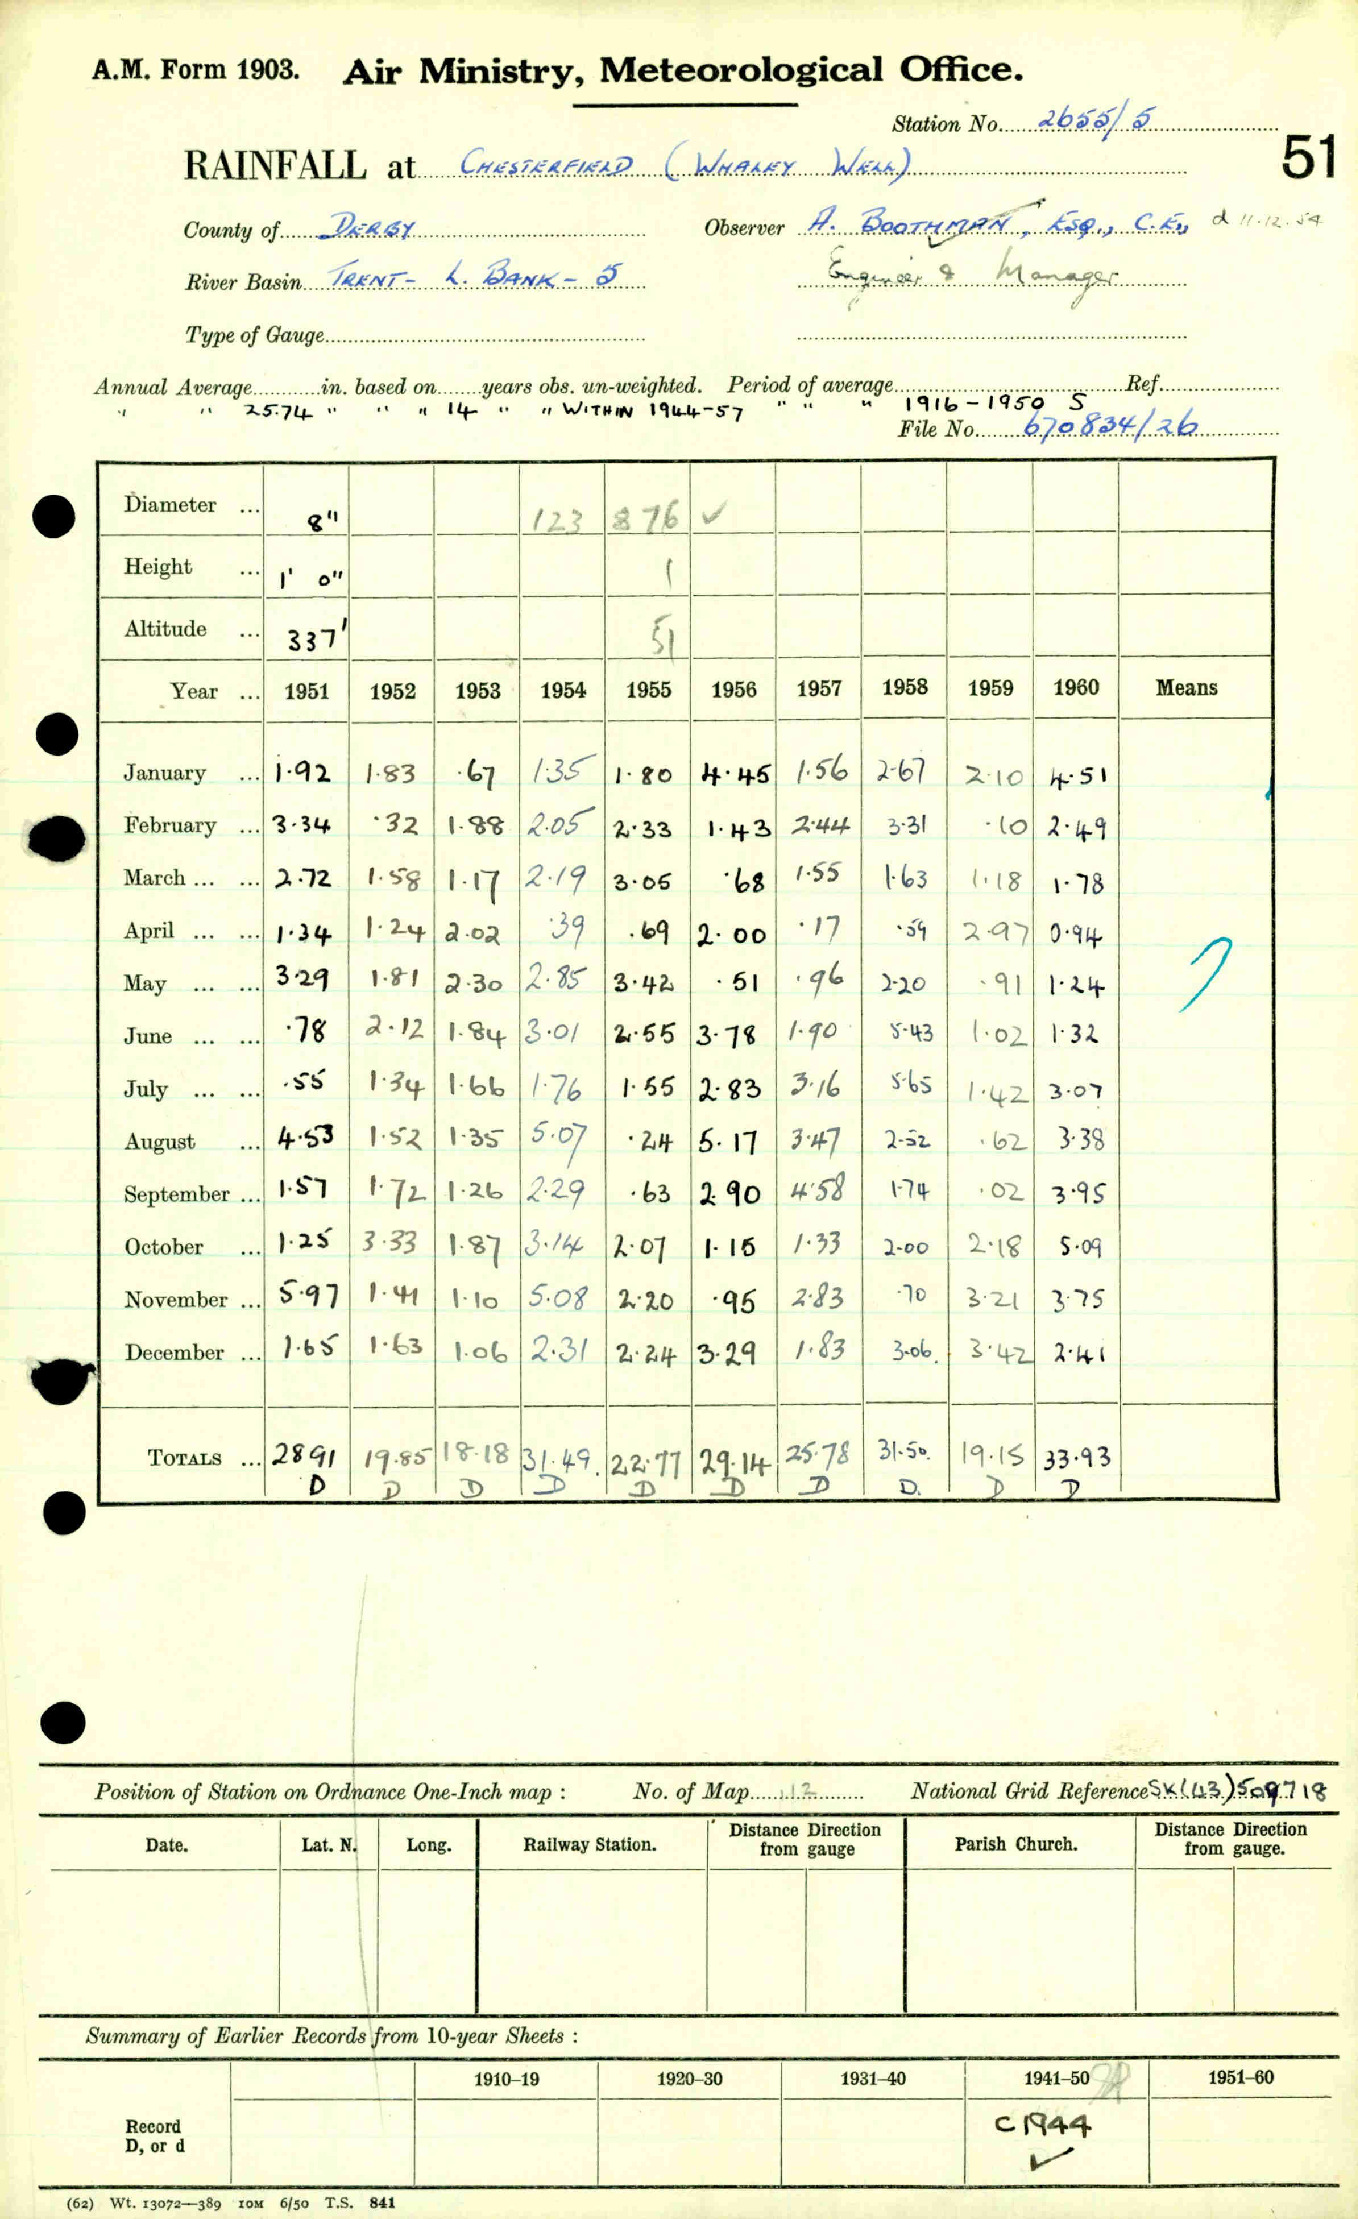 A.M. Form 1903. Air Ministry, Meteorological Office.
Station No. 2655/5
51
RAINFALL at CHESTERFIELD (WHALEY WELL)
County of DERBY Observer A. BOOTHMAN, ESQ., C.E., d 11.12.54
River Basin TRENT - L. BANK - 5 Engineer & Manager
Type of Gauge
Annual Average in. based on years obs. un-weighted. Period of average Ref.
" " 25.74 " " " 14 " " WITHIN 1944-57 " " " 1916-1950 S
File No. 670834/26
Diameter ... 8" 123 876 ✓
Height ... 1' 0" 1
Altitude ... 337' 51
Year ... 1951 1952 1953 1954 1955 1956 1957 1958 1959 1960 Means
January ... 1.92 1.83 .67 1.35 1.80 4.45 1.56 2.67 2.10 4.51
February ... 3.34 .32 1.88 2.05 2.33 1.43 2.44 3.31 .10 2.49
March ... ... 2.72 1.58 1.17 2.19 3.05 .68 1.55 1.63 1.18 1.78
April ... ... 1.34 1.24 2.02 .39 .69 2.00 .17 .59 2.97 0.94
May ... ... 3.29 1.81 2.30 2.85 3.42 .51 .96 2.20 .91 1.24
June ... ... .78 2.12 1.84 3.01 2.55 3.78 1.90 5.43 1.02 1.32
July ... ... .55 1.34 1.66 1.76 1.55 2.83 3.16 5.65 1.42 3.07
August ... 4.53 1.52 1.35 5.07 .24 5.17 3.47 2.52 .62 3.38
September ... 1.57 1.72 1.26 2.29 .63 2.90 4.58 1.74 .02 3.95
October ... 1.25 3.33 1.87 3.14 2.07 1.15 1.33 2.00 2.18 5.09
November ... 5.97 1.41 1.10 5.08 2.20 .95 2.83 .70 3.21 3.75
December ... 1.65 1.63 1.06 2.31 2.24 3.29 1.83 3.06 3.42 2.41
TOTALS ... 28 91 19.85 18.18 31.49 22.77 29.14 25.78 31.50 19.15 33.93
D D D D D D D D. D D
Position of Station on Ordnance One-Inch map : No. of Map 112 National Grid Reference SK(43)509718
Date. Lat. N. Long. Railway Station. Distance Direction from gauge Parish Church. Distance Direction from gauge.
Summary of Earlier Records from 10-year Sheets :
1910–19 1920–30 1931–40 1941–50 1951–60
Record D, or d C 1944 ✓
(62) Wt. 13072—389 10M 6/50 T.S. 841